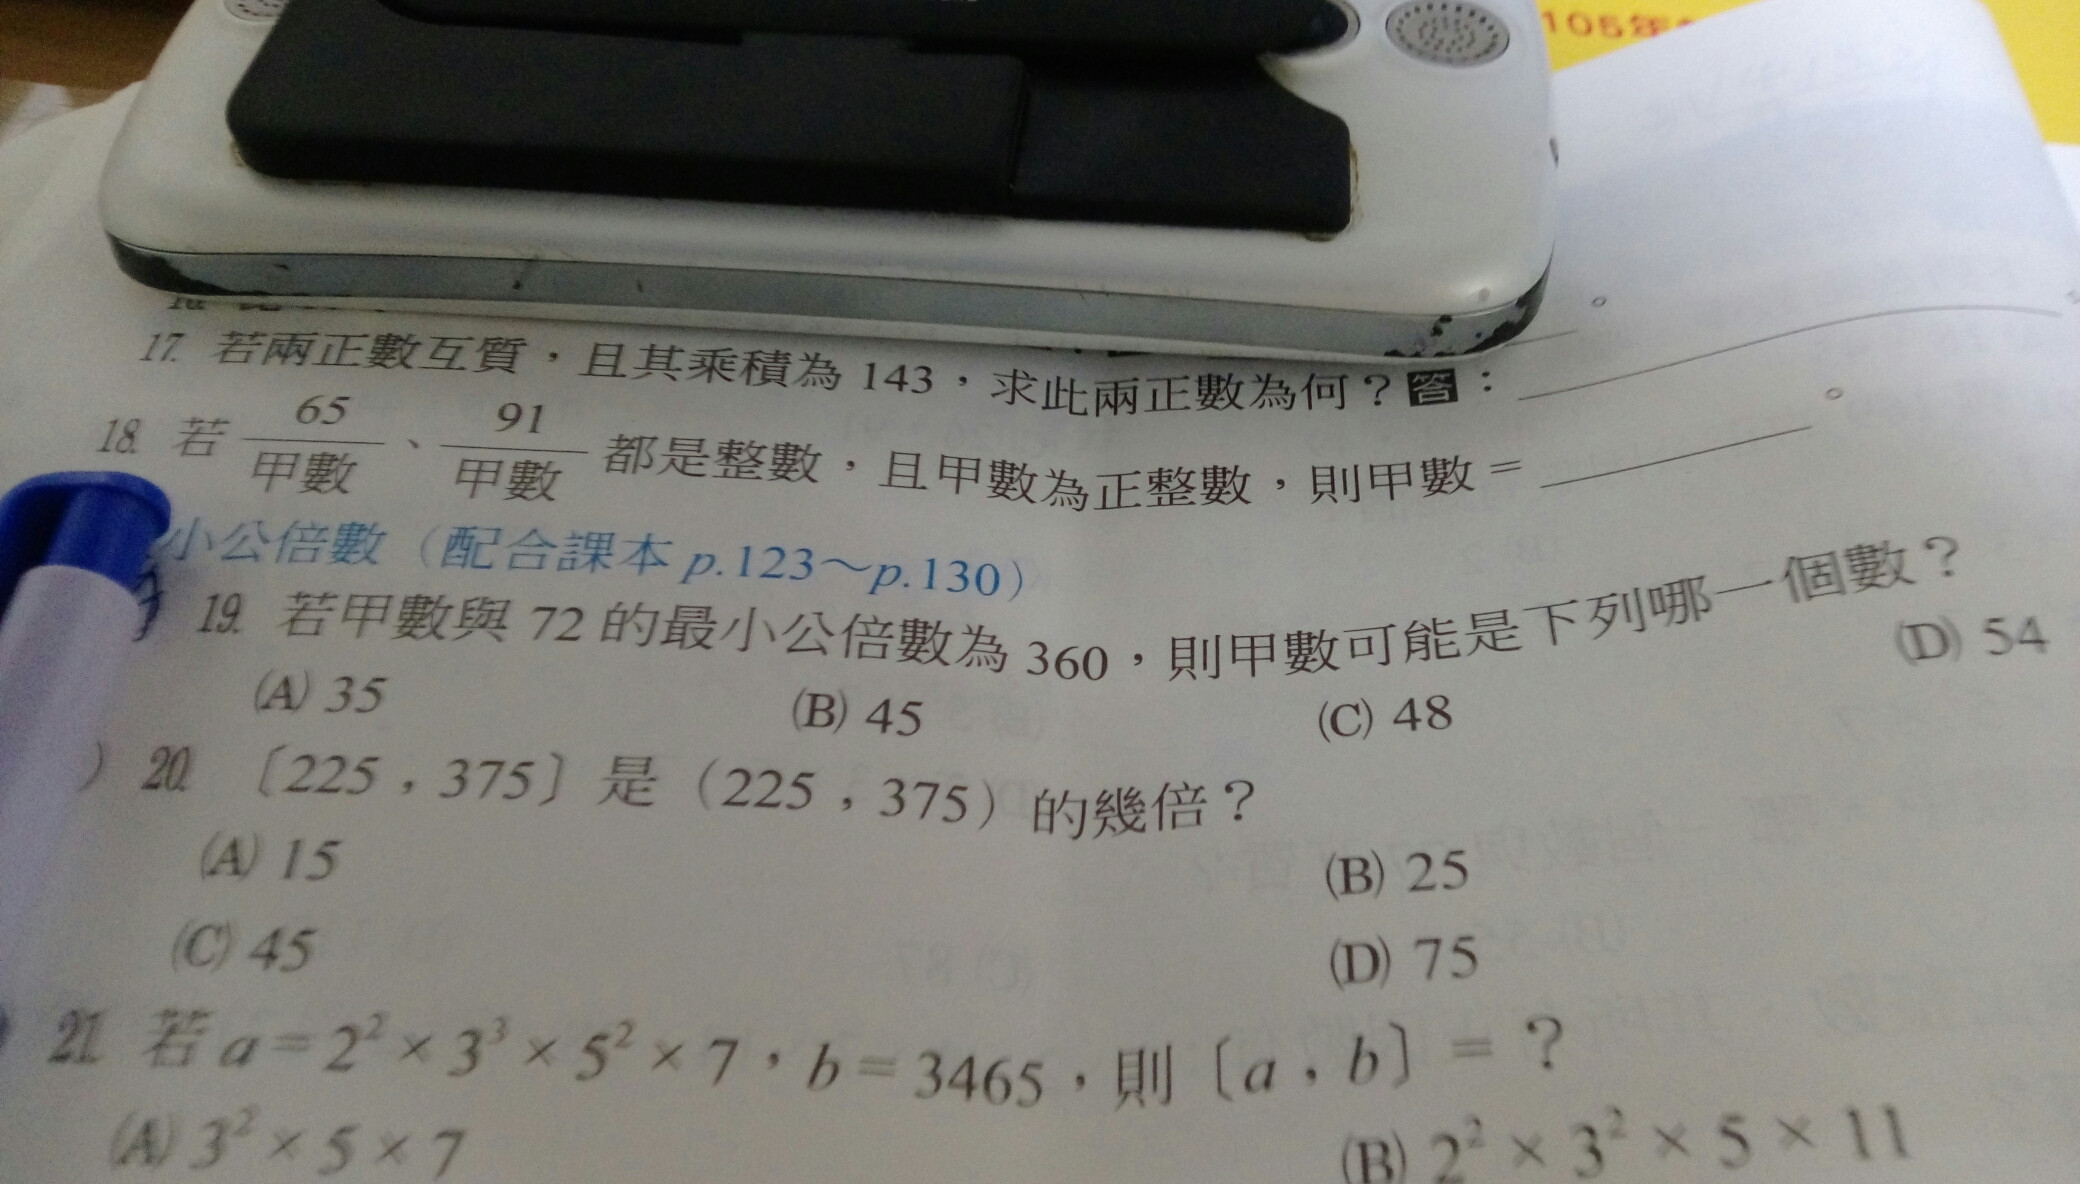 105年
17. 若兩正數互質，且其乘積為 143，求此兩正數為何？答：＿＿＿。
18. 若 65/甲數、91/甲數 都是整數，且甲數為正整數，則甲數＝＿＿＿。
小公倍數（配合課本 p.123～p.130）
19. 若甲數與 72 的最小公倍數為 360，則甲數可能是下列哪一個數？
(A) 35 (B) 45 (C) 48 (D) 54
) 20. 〔225，375〕是（225，375）的幾倍？
(A) 15 (B) 25
(C) 45 (D) 75
21. 若 a＝2²×3³×5²×7，b＝3465，則〔a，b〕＝？
(A) 3²×5×7 (B) 2²×3²×5×11